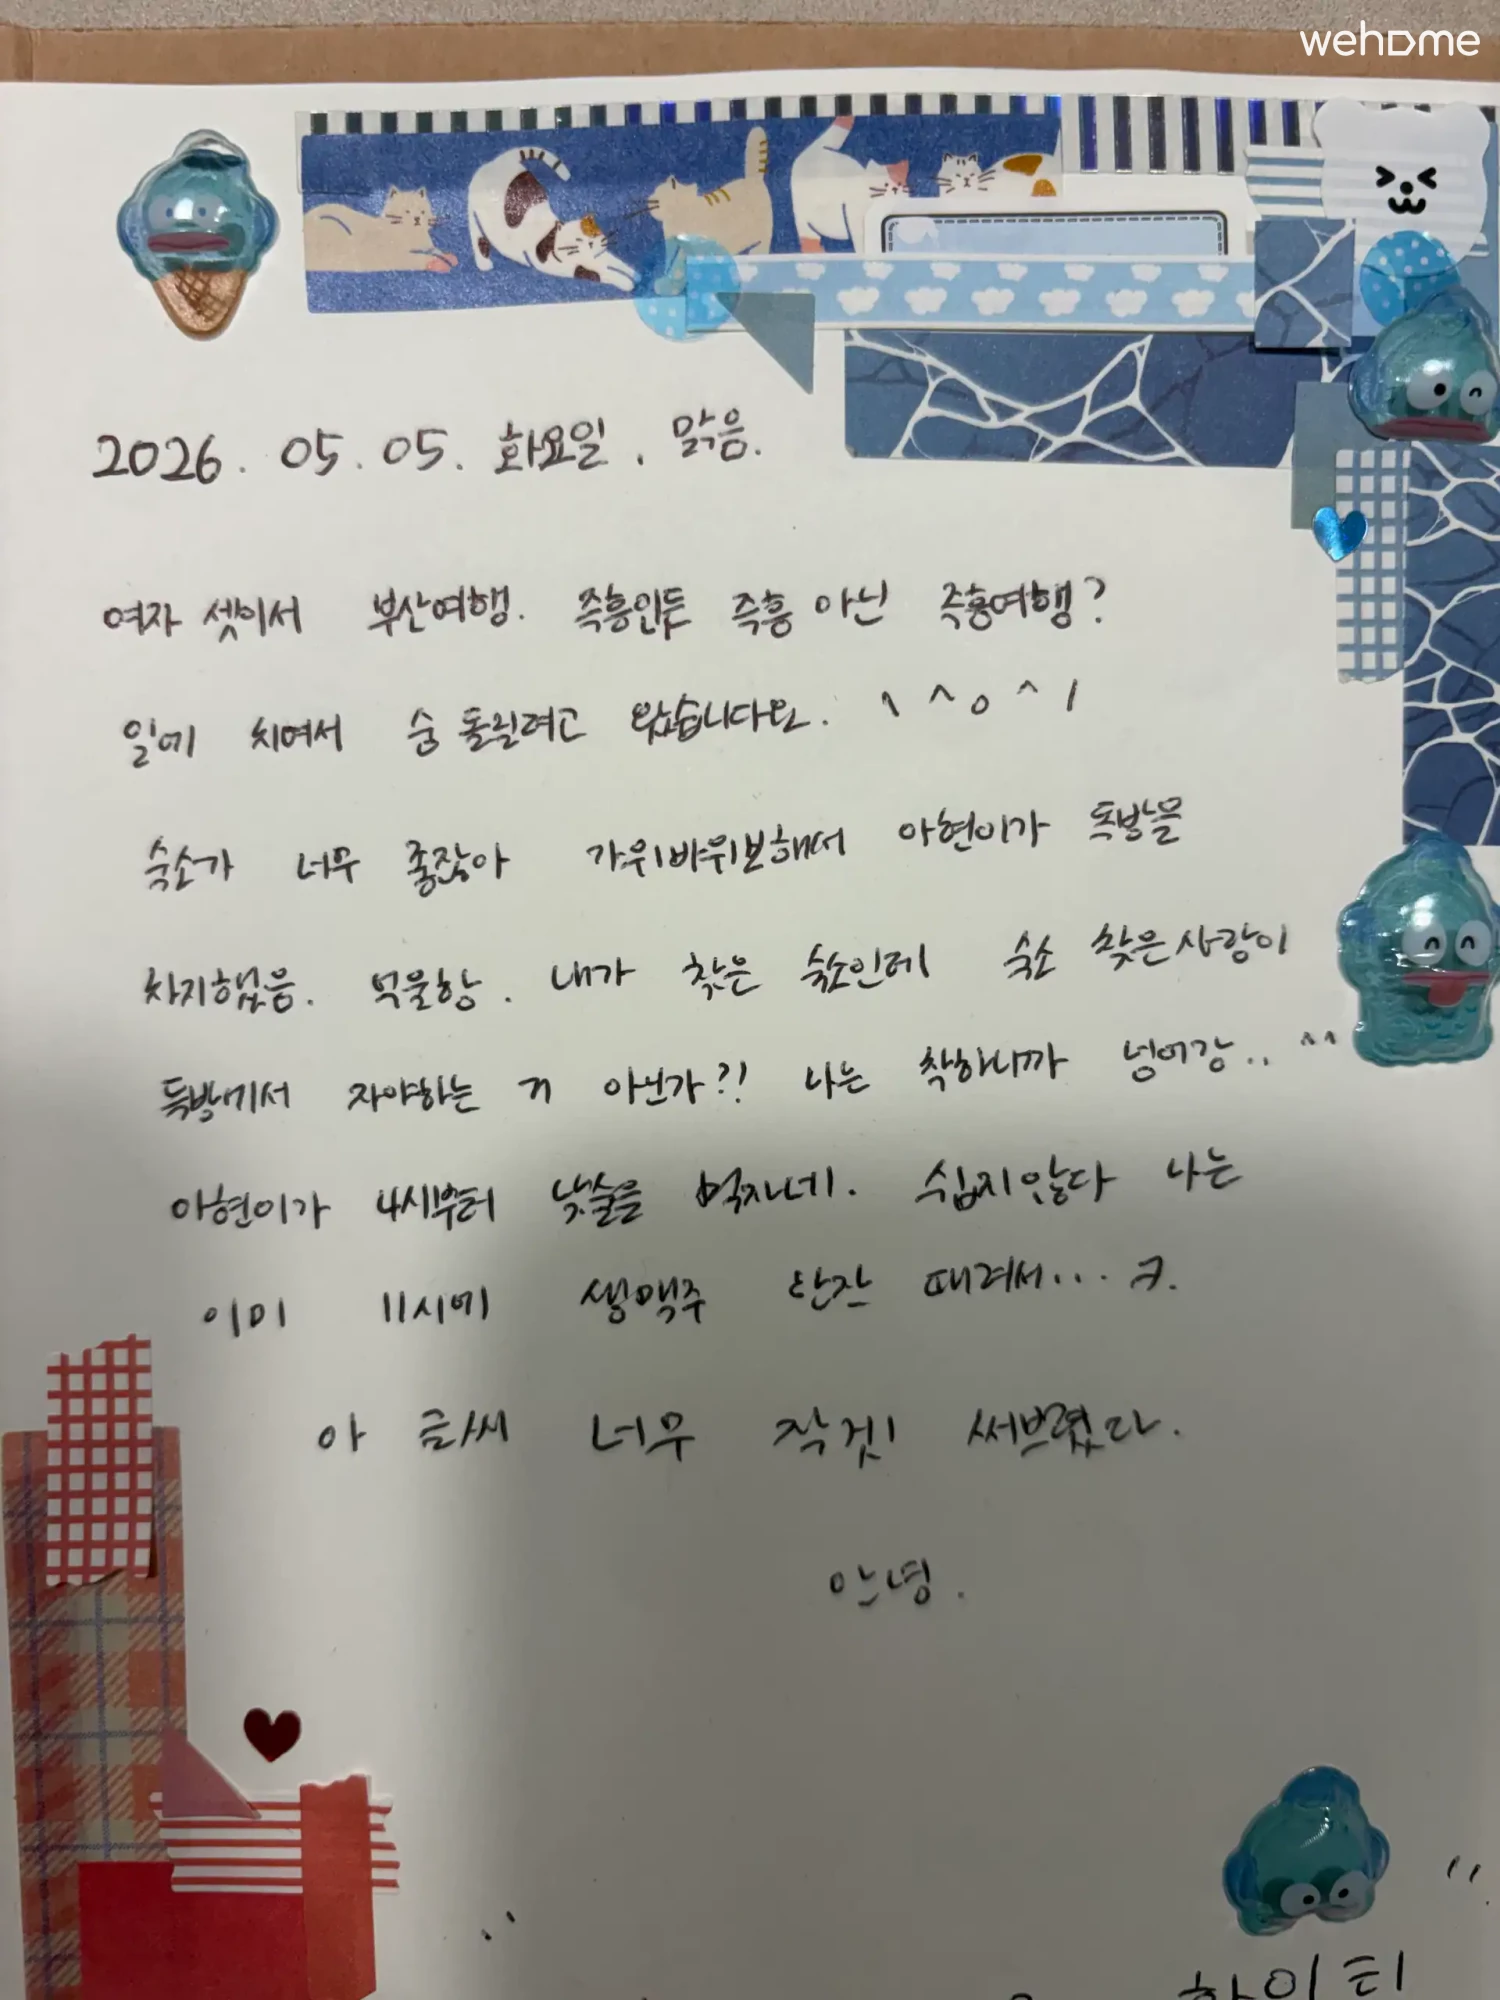 wehome
2026. 05. 05. 화요일. 맑음.
여자 셋이서 부산여행. 즉흥인듯 즉흥 아닌 즉흥여행?
일에 치여서 숨 돌릴려고 왔습니다요. \ ^ o ^ /
숙소가 너무 좋잖아 가위바위보해서 아현이가 독방을
차지했음. 억울항. 내가 찾은 숙소인데 숙소 찾은사람이
독방에서 자야하는 거 아닌가?! 나는 착하니까 넘어강.. ^^
아현이가 4시부터 낮술을 먹자네. 쉽지않다 나는
이미 11시에 생맥주 한잔 때려서... ㅋ.
아 글씨 너무 작겟! 써브렸다.
안녕.
하이티